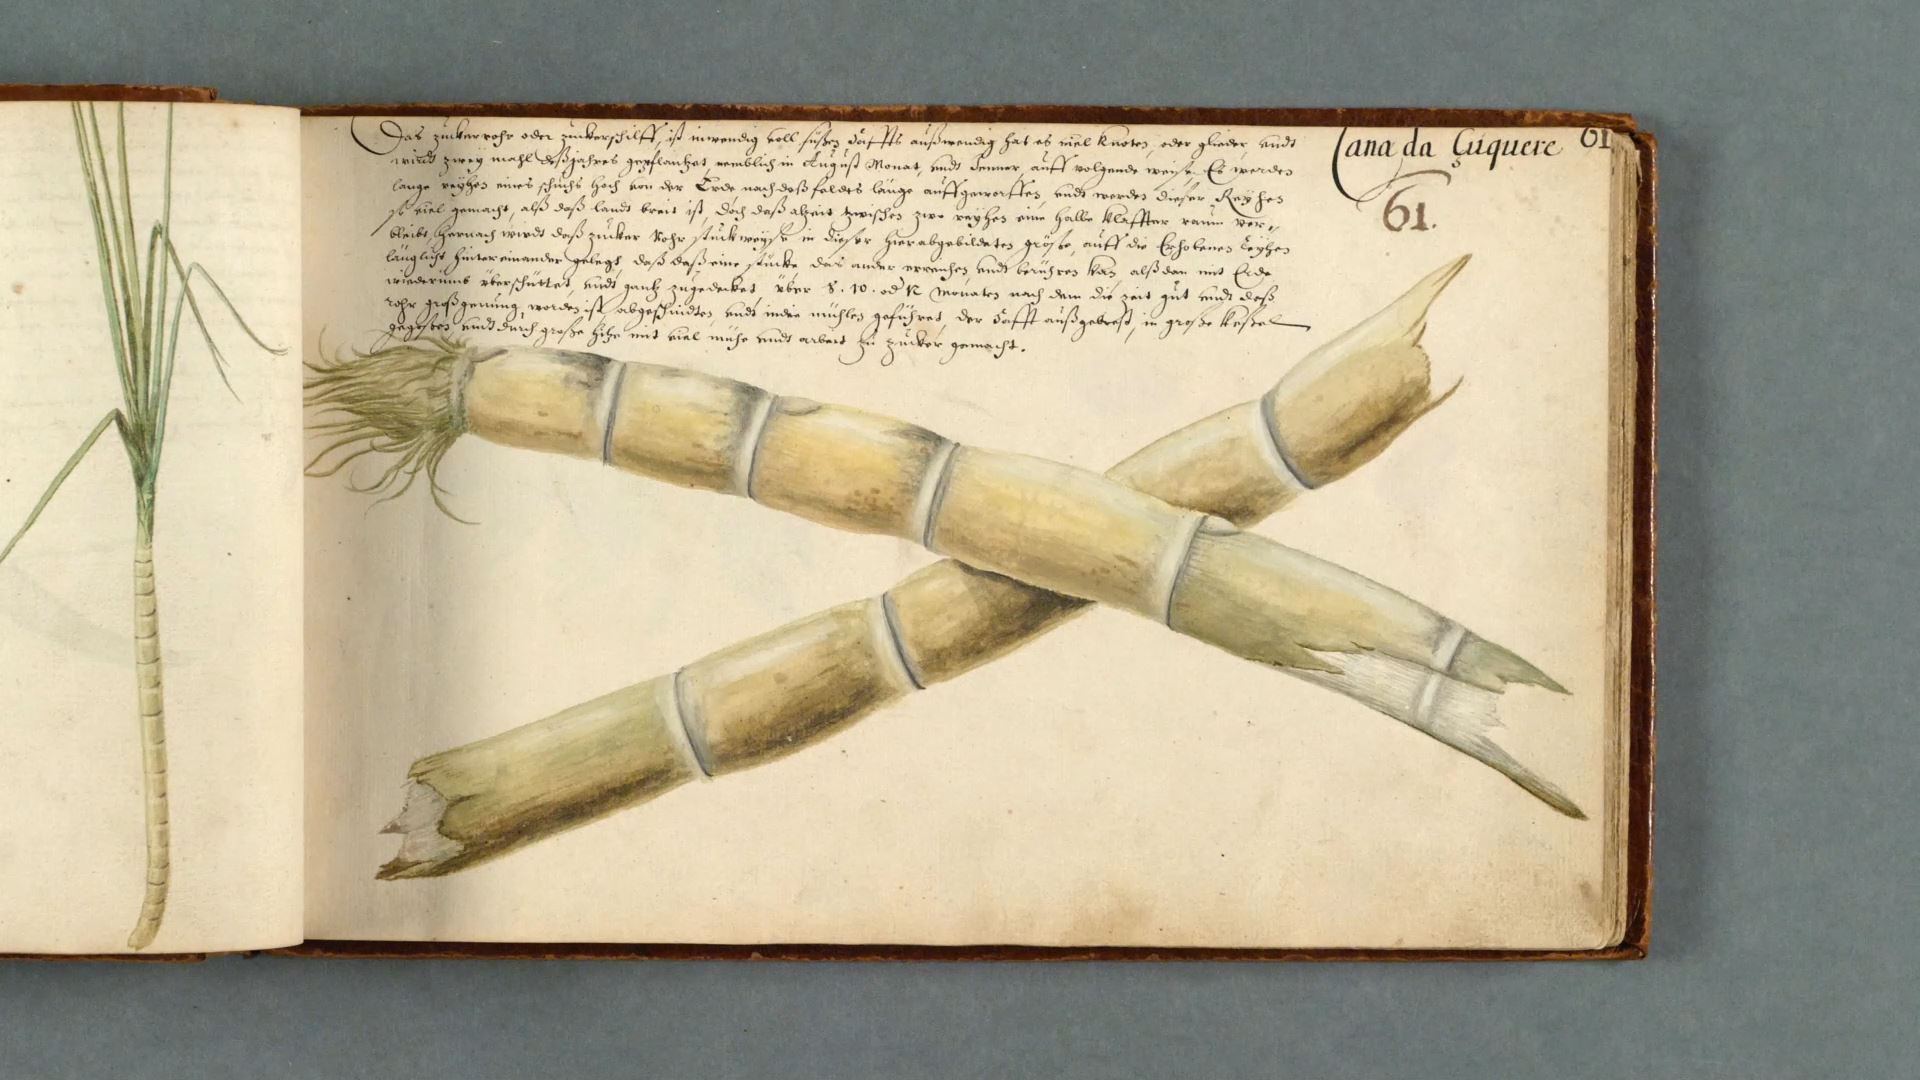 Cana da Cúquere 61
61.
Das zuckerrohr oder zuckerschilff, ist inwendig voll süßen saffts außwendig hat es viel knoten, oder glieder, undt
wirdt zwey mahl deß jahres gepflantzet, nemblich in August Monat, undt Jenner, auff volgende weise. Es werden
lange reyhen eines schuchs hoch von der Erde nach deß feldes länge auffgeworffen, undt werden dieser Reyhen
so viel gemacht, alß daß landt breit ist, doch daß alzeit zwischen zwo reyhen eine halbe klaffter raum ver-
bleibt, hernach wirdt daß zucker Rohr stückweyse in dieser hier abgebildeten größe, auff die Erhobenen reyhen
länglicht hintereinander gelegt, daß daß eine stücke das ander erreichen undt berühren kan, alßdan mit Erde
wiederumb überschüttet, undt gantz zugedecket, über 8. 10. od 12 Monaten nach dem die zeit gut undt deß
rohr groß genung worden ist, abgeschnidten, undt in die mühlen geführet, der safft außgepreßt, in große keßel
gegoßen undt durch große hitze mit viel mühe undt arbeit zu zucker gemacht.